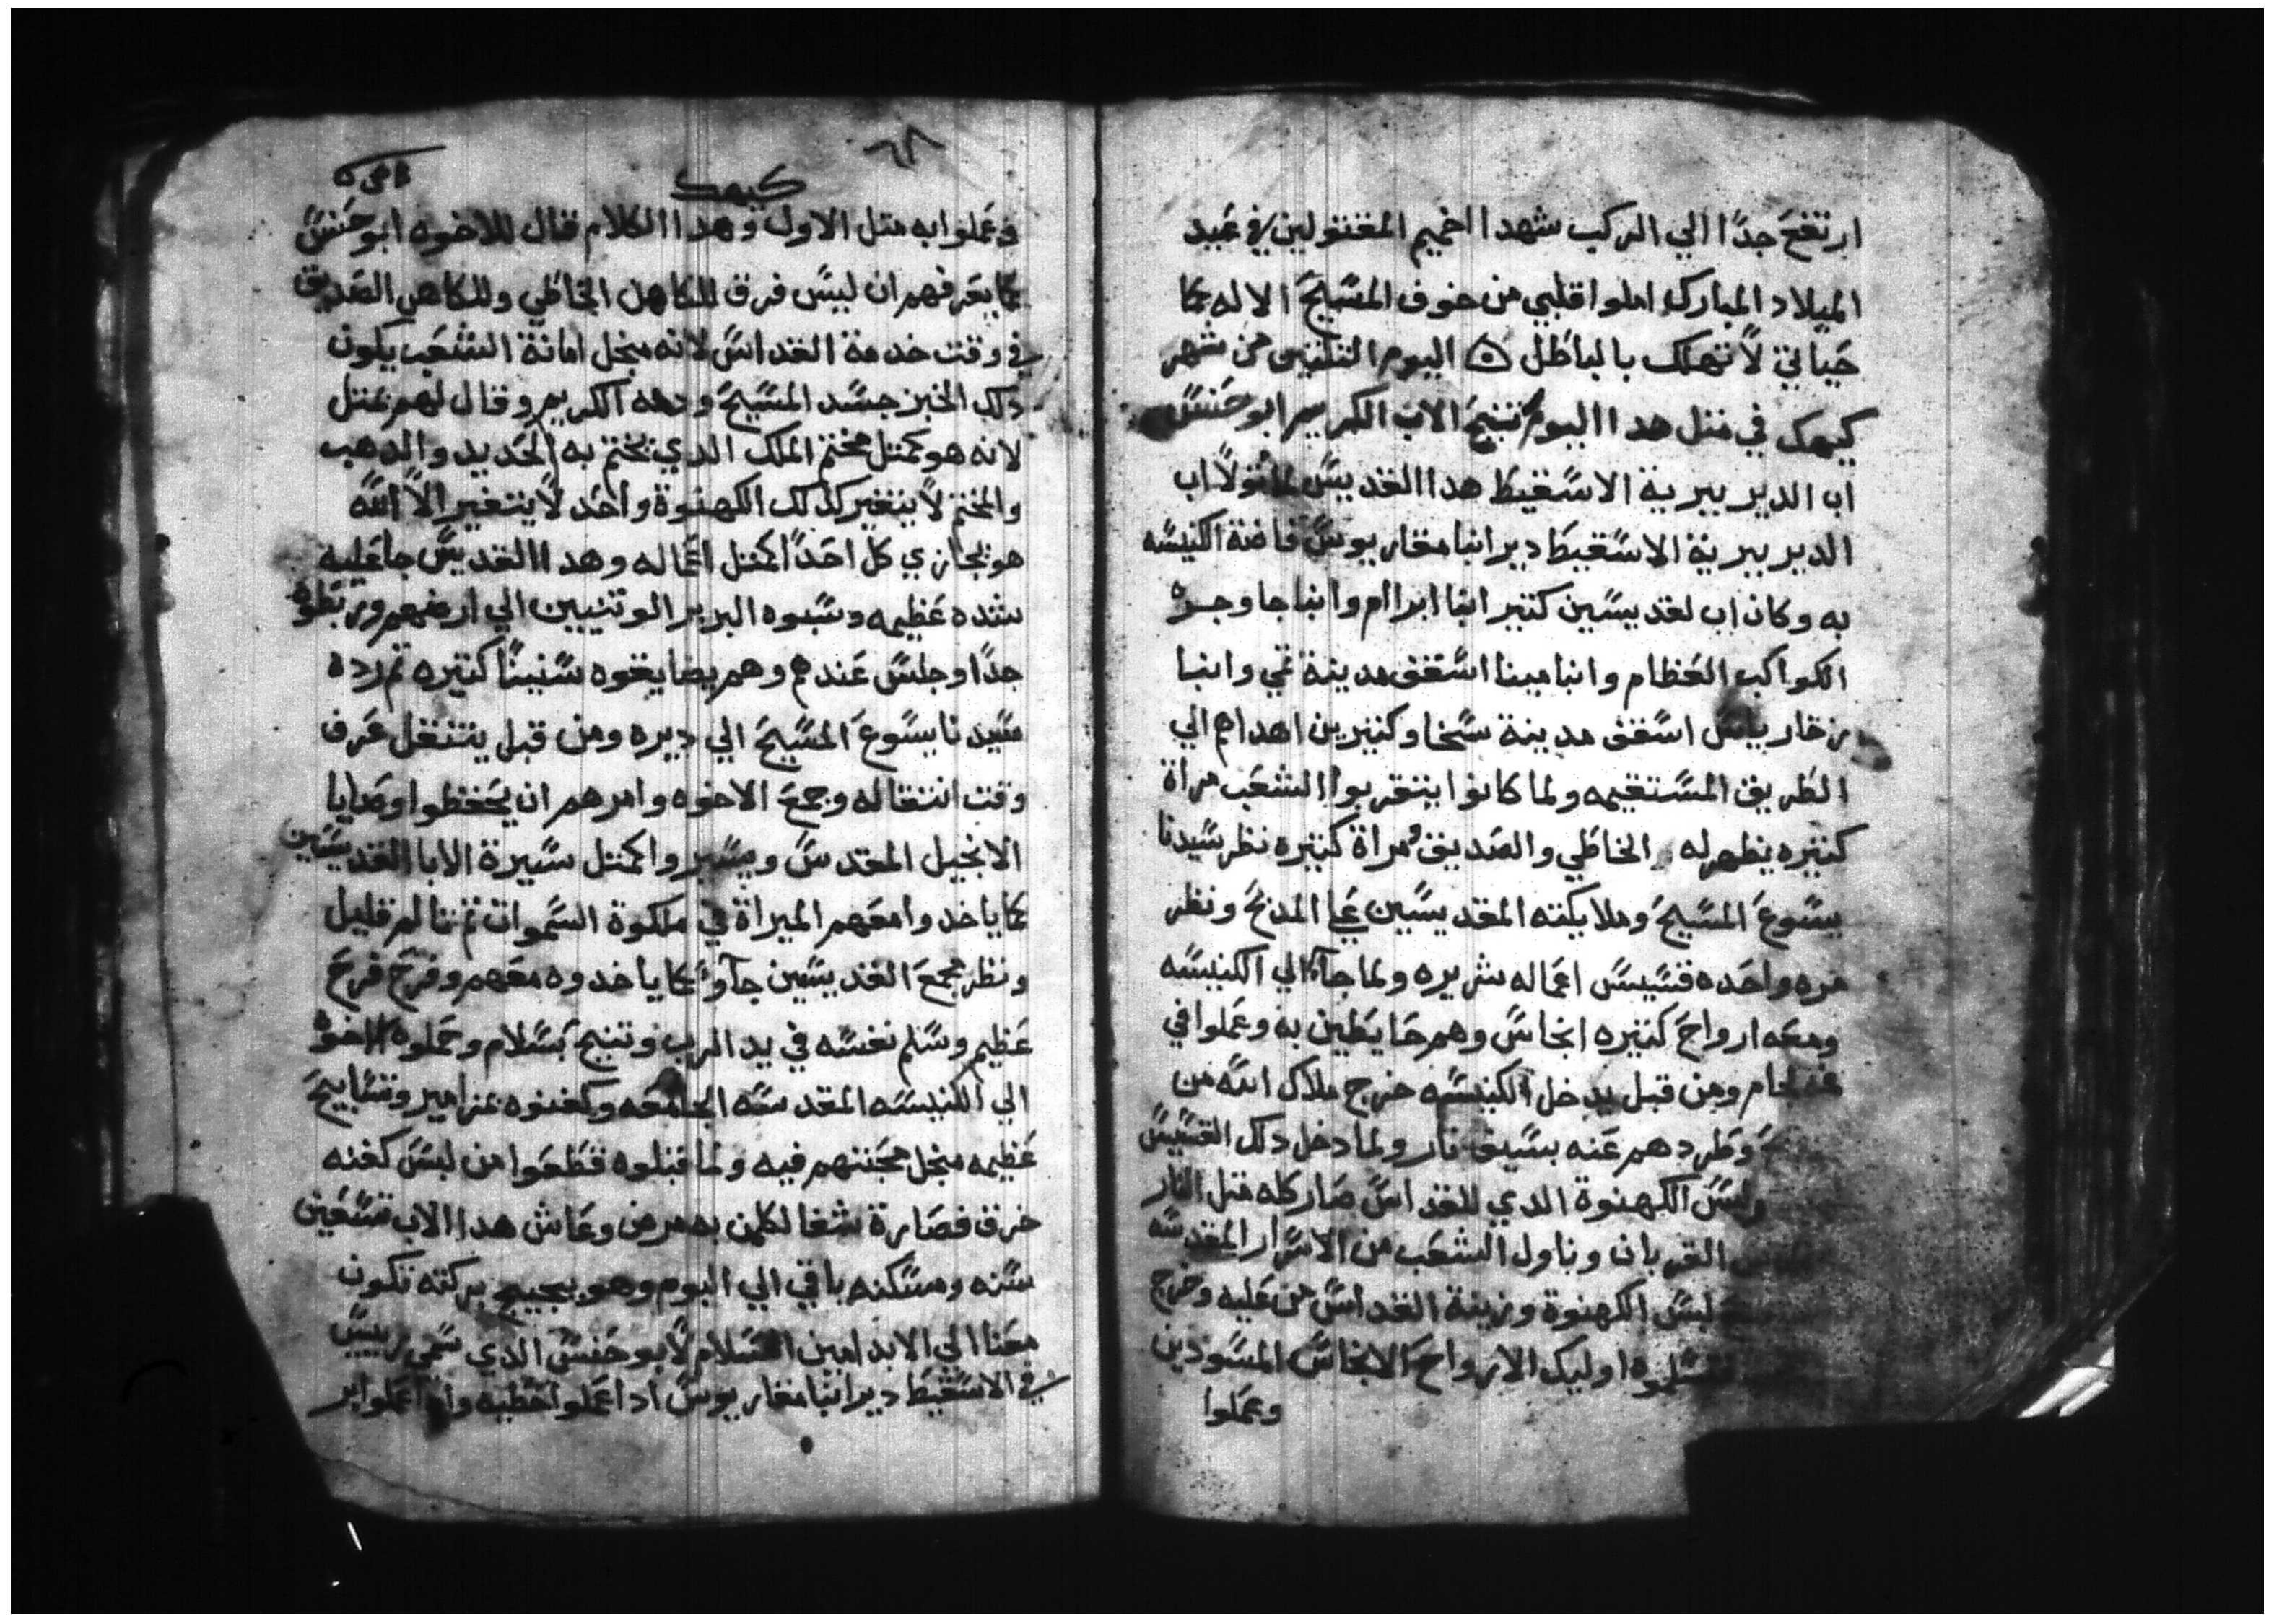 ارتفع جدا الي الركب شهدا اخميم المقتولين في عيد
الميلاد المبارك املوا قلبي من خوف المسيح الاله كما
حياتي لا تهلك بالباطل اليوم التلتين من شهر
كيهك في متل هدا اليوم تنيح الاب الكريم ابو حنس
اب الدير ببرية الاسقيط هدا القديس اب
الدير ببرية الاسقيط دير انبا مقاريوس الكنيسه
به وكان اب لقديسين كتير انبا ابرام وانبا جاوجره
الكواكب العظام وانبا مينا اسقف مدينة تمي وانبا
زخارياس اسقف مدينة سخا وكتيرين اهداهم الي
الطريق المستقيمه ولما كانوا يتقربوا الشعب مراة
كتيره يظهر له الخاطي والصديق ومراة كتيره نظر سيدنا
يسوع المسيح وملايكته المقديسين علي المدبح ونظر
مره واحده قسيس اعماله شريره ولما جا الي الكنيسه
ومعه ارواح كتيره انجاس وهم حايطين به وعملوا في
لجام ومن قبل يدخل الكنيسه خرج ملاك الله من
وطردهم عنه بسيف نار ولما دخل دلك القسيس
ولبس الكهنوة الدي للقداس صار كله متل النار
القربان وناول الشعب من الاسرار المقدسه
لبس الكهنوة وزينة القداس من عليه وخرج
اوليك الارواح الانجاس المسودين
وعملوا
٦٨
كيهك
وعملوا به متل الاول وهدا الكلام قال للاخوه ابو حنس
كما يعرفهم ان ليس فرق للكاهن الخاطي وللكاهن الصديق
في وقت خدمة القداس لانه مجل امانة الشعب يكون
دلك الخبز جسد المسيح ودمه الكريم وقال لهم متل
لانه هو كمتل مختم الملك الدي يختم به الحديد والدهب
والمختم لا يتغير كذلك الكهنوة واحد لا يتغير الا الله
هو يجازي كل احدا كمتل اعماله وهدا القديس جا عليه
شده عظيمه وسبوه البربر الوتنيين الي ارضهم وربطوه
جدا وجلس عندهم وهم يضايقوه سنينا كتيره تم رده
سيدنا يسوع المسيح الي ديره ومن قبل يتنقل عرف
وقت انتقاله وجمع الاخوه وامرهم ان يحفظوا وصايا
الانجيل المقدس ويسيروا كمتل سيرة الابا القديسين
كما ياخدوا معهم الميراة في ملكوة السموات تم تالم قليل
ونظر مجمع القديسين جاوا كما ياخدوه معهم وفرح فرح
عظيم وسلم نفسه في يد الرب وتنيح بسلام وحملوه الاخوه
الي الكنيسه المقدسه الجامعه وكفنوه بمزامير وتسابيح
عظيمه مجل محبتهم فيه ولما قبلوه قطعوا من لبس كفنه
خرق فصارة شفا لكلمن به مرض وعاش هدا الاب تسعين
سنه ومسكنه باقي الي اليوم وهو بيجيج بركته تكون
معنا الي الابد امين السلام لابو حنس الدي سمي رييس
في الاسقيط دير انبا مقاريوس ادا عملوا خطيه